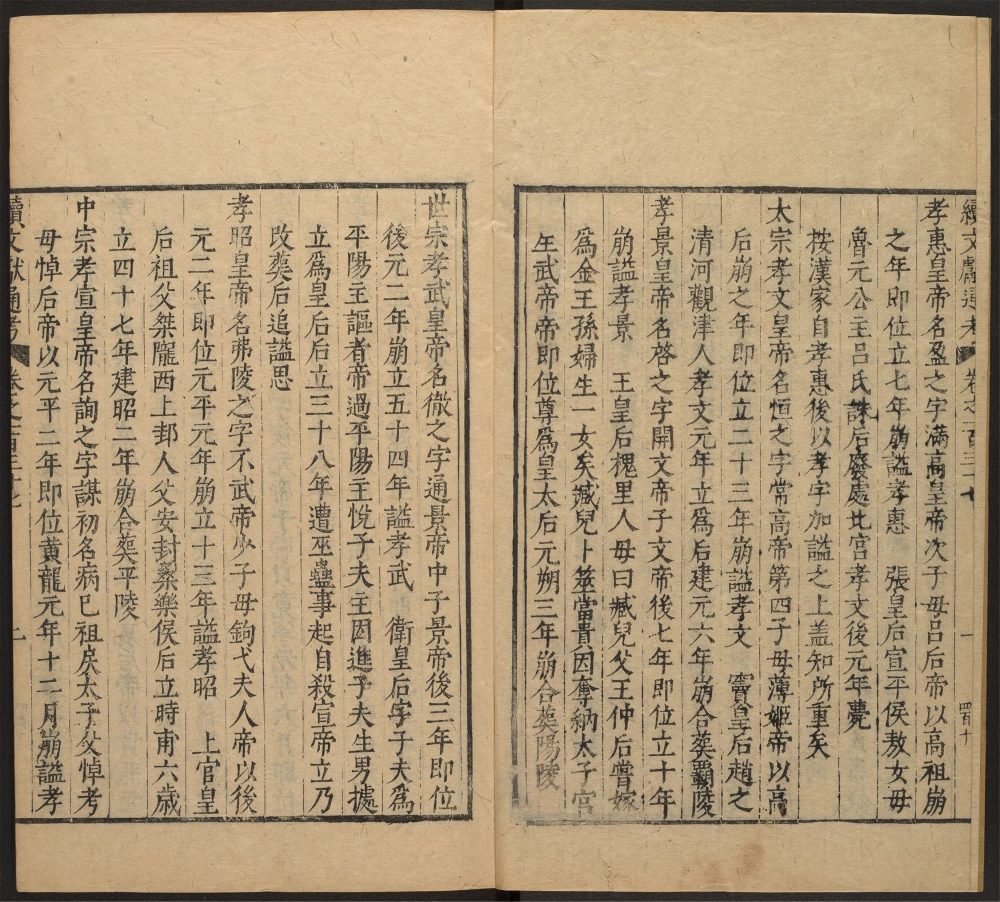 續文獻通考 卷之一百三十七 一 四百十
孝惠皇帝名盈之字滿高皇帝次子母呂后帝以高祖崩
之年即位立七年崩謚孝惠 張皇后宣平侯敖女母
魯元公主呂氏誅后廢處北宮孝文後元年薨
按漢家自孝惠後以孝字加謚之上盖知所重矣
太宗孝文皇帝名恒之字常高帝第四子母薄姬帝以高
后崩之年即位立二十三年崩謚孝文 竇皇后趙之
清河觀津人孝文元年立爲后建元六年崩合葬覇陵
孝景皇帝名啓之字開文帝子文帝後七年即位立十年
崩謚孝景 王皇后槐里人母曰臧兒父王仲后嘗嫁
爲金王孫婦生一女矣臧兒卜筮當貴因奪納太子宮
生武帝帝即位尊爲皇太后元朔三年崩合葬陽陵
世宗孝武皇帝名徹之字通景帝中子景帝後三年即位
後元二年崩立五十四年謚孝武 衛皇后字子夫爲
平陽主謳者帝過平陽主悅子夫主因進子夫生男據
立爲皇后后立三十八年遭巫蠱事起自殺宣帝立乃
改葬后追謚思
孝昭皇帝名弗陵之字不武帝少子母鉤弋夫人帝以後
元二年即位元平元年崩立十三年謚孝昭 上官皇
后祖父桀隴西上邽人父安封桑樂侯后立時甫六歲
立四十七年建昭二年崩合葬平陵
中宗孝宣皇帝名詢之字謀初名病巳祖戾太子父悼考
母悼后帝以元平二年即位黃龍元年十二月崩謚孝
續文獻通考 卷之一百三十七 一